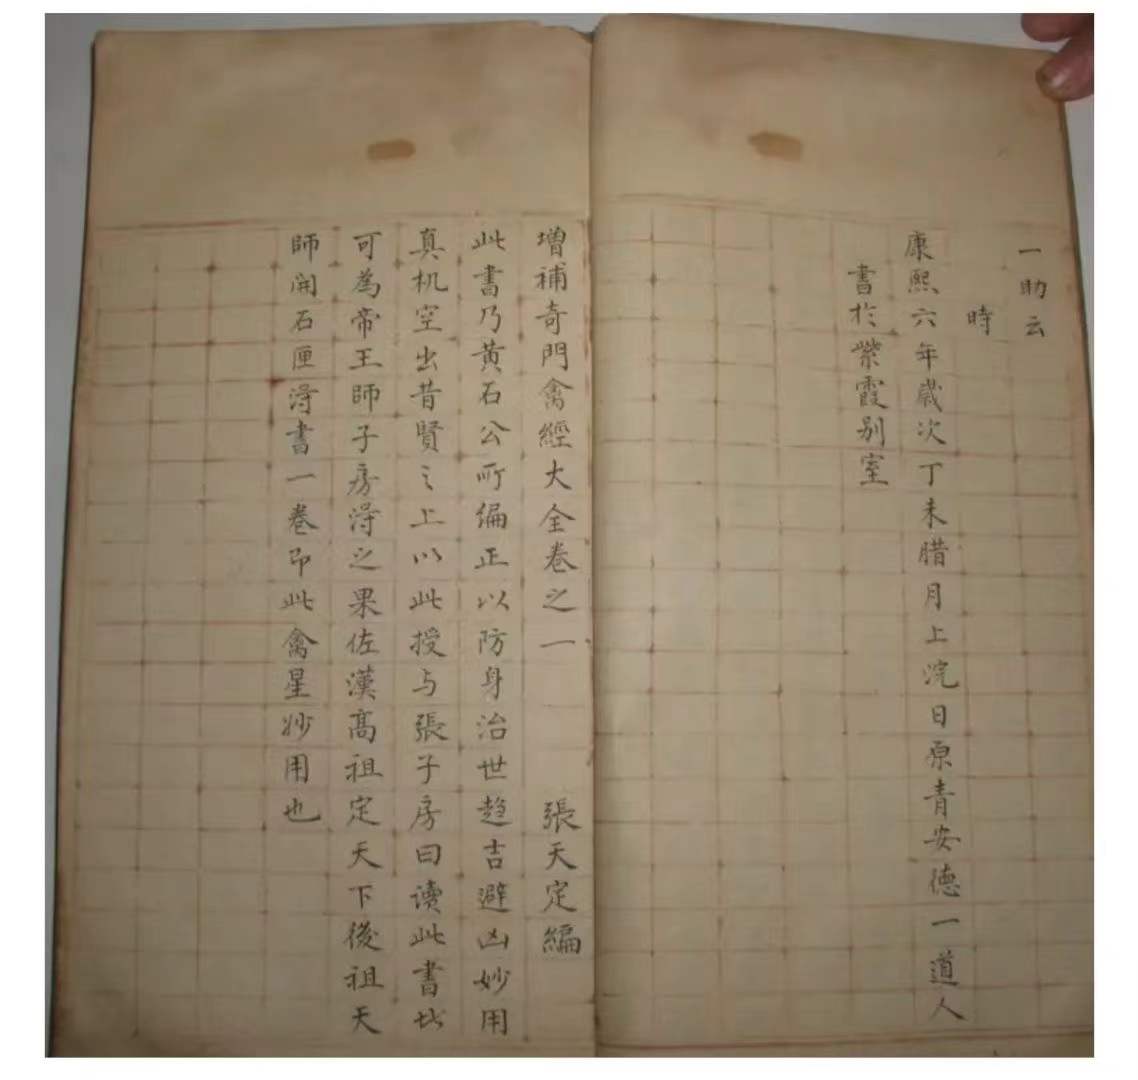 一助云
時
康熙六年歲次丁未腊月上浣日原青安德一道人
書於紫霞別室
增補奇門禽經大全卷之一 張天定編
此書乃黃石公所编正以防身治世趋吉避凶妙用
真机空出昔賢之上以此授与張子房曰读此書
可為帝王師子房淂之果佐漢高祖定天下後祖天
師開石匣淂書一卷即此禽星妙用也